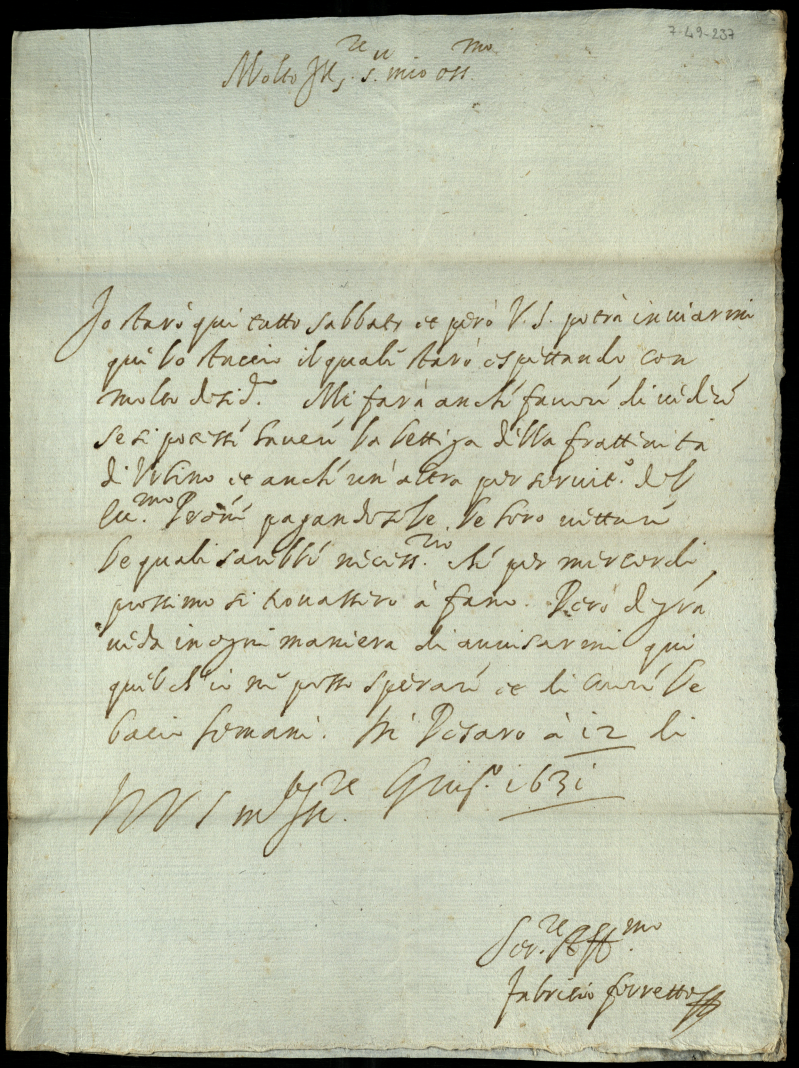 7-49-237
Molto Ill.re s.r mio oss.mo
Io starò qui tutto sabbato et però V.S. potrà inviarmi
quel lo staccio il quale starò aspettando con
molto desid.o Mi farà anche favore di vedere
se si potesse havere la lettiga della fratternita
di Urbino et anche un'altra per servit.o del
pagandosile le loro vetture
le quali sarebbe necess.rio che per mercordì
prossimo si trovassero à fano. Però di gra
veda in ogni maniera di avvisarmi qui
quel che io ne posso sperare et di cuore le
bacio le mani. Di Pesaro à 12 di
Giug.o 1631
D V S m Ill.re
Ser.re Aff.mo
fabritio ferretto